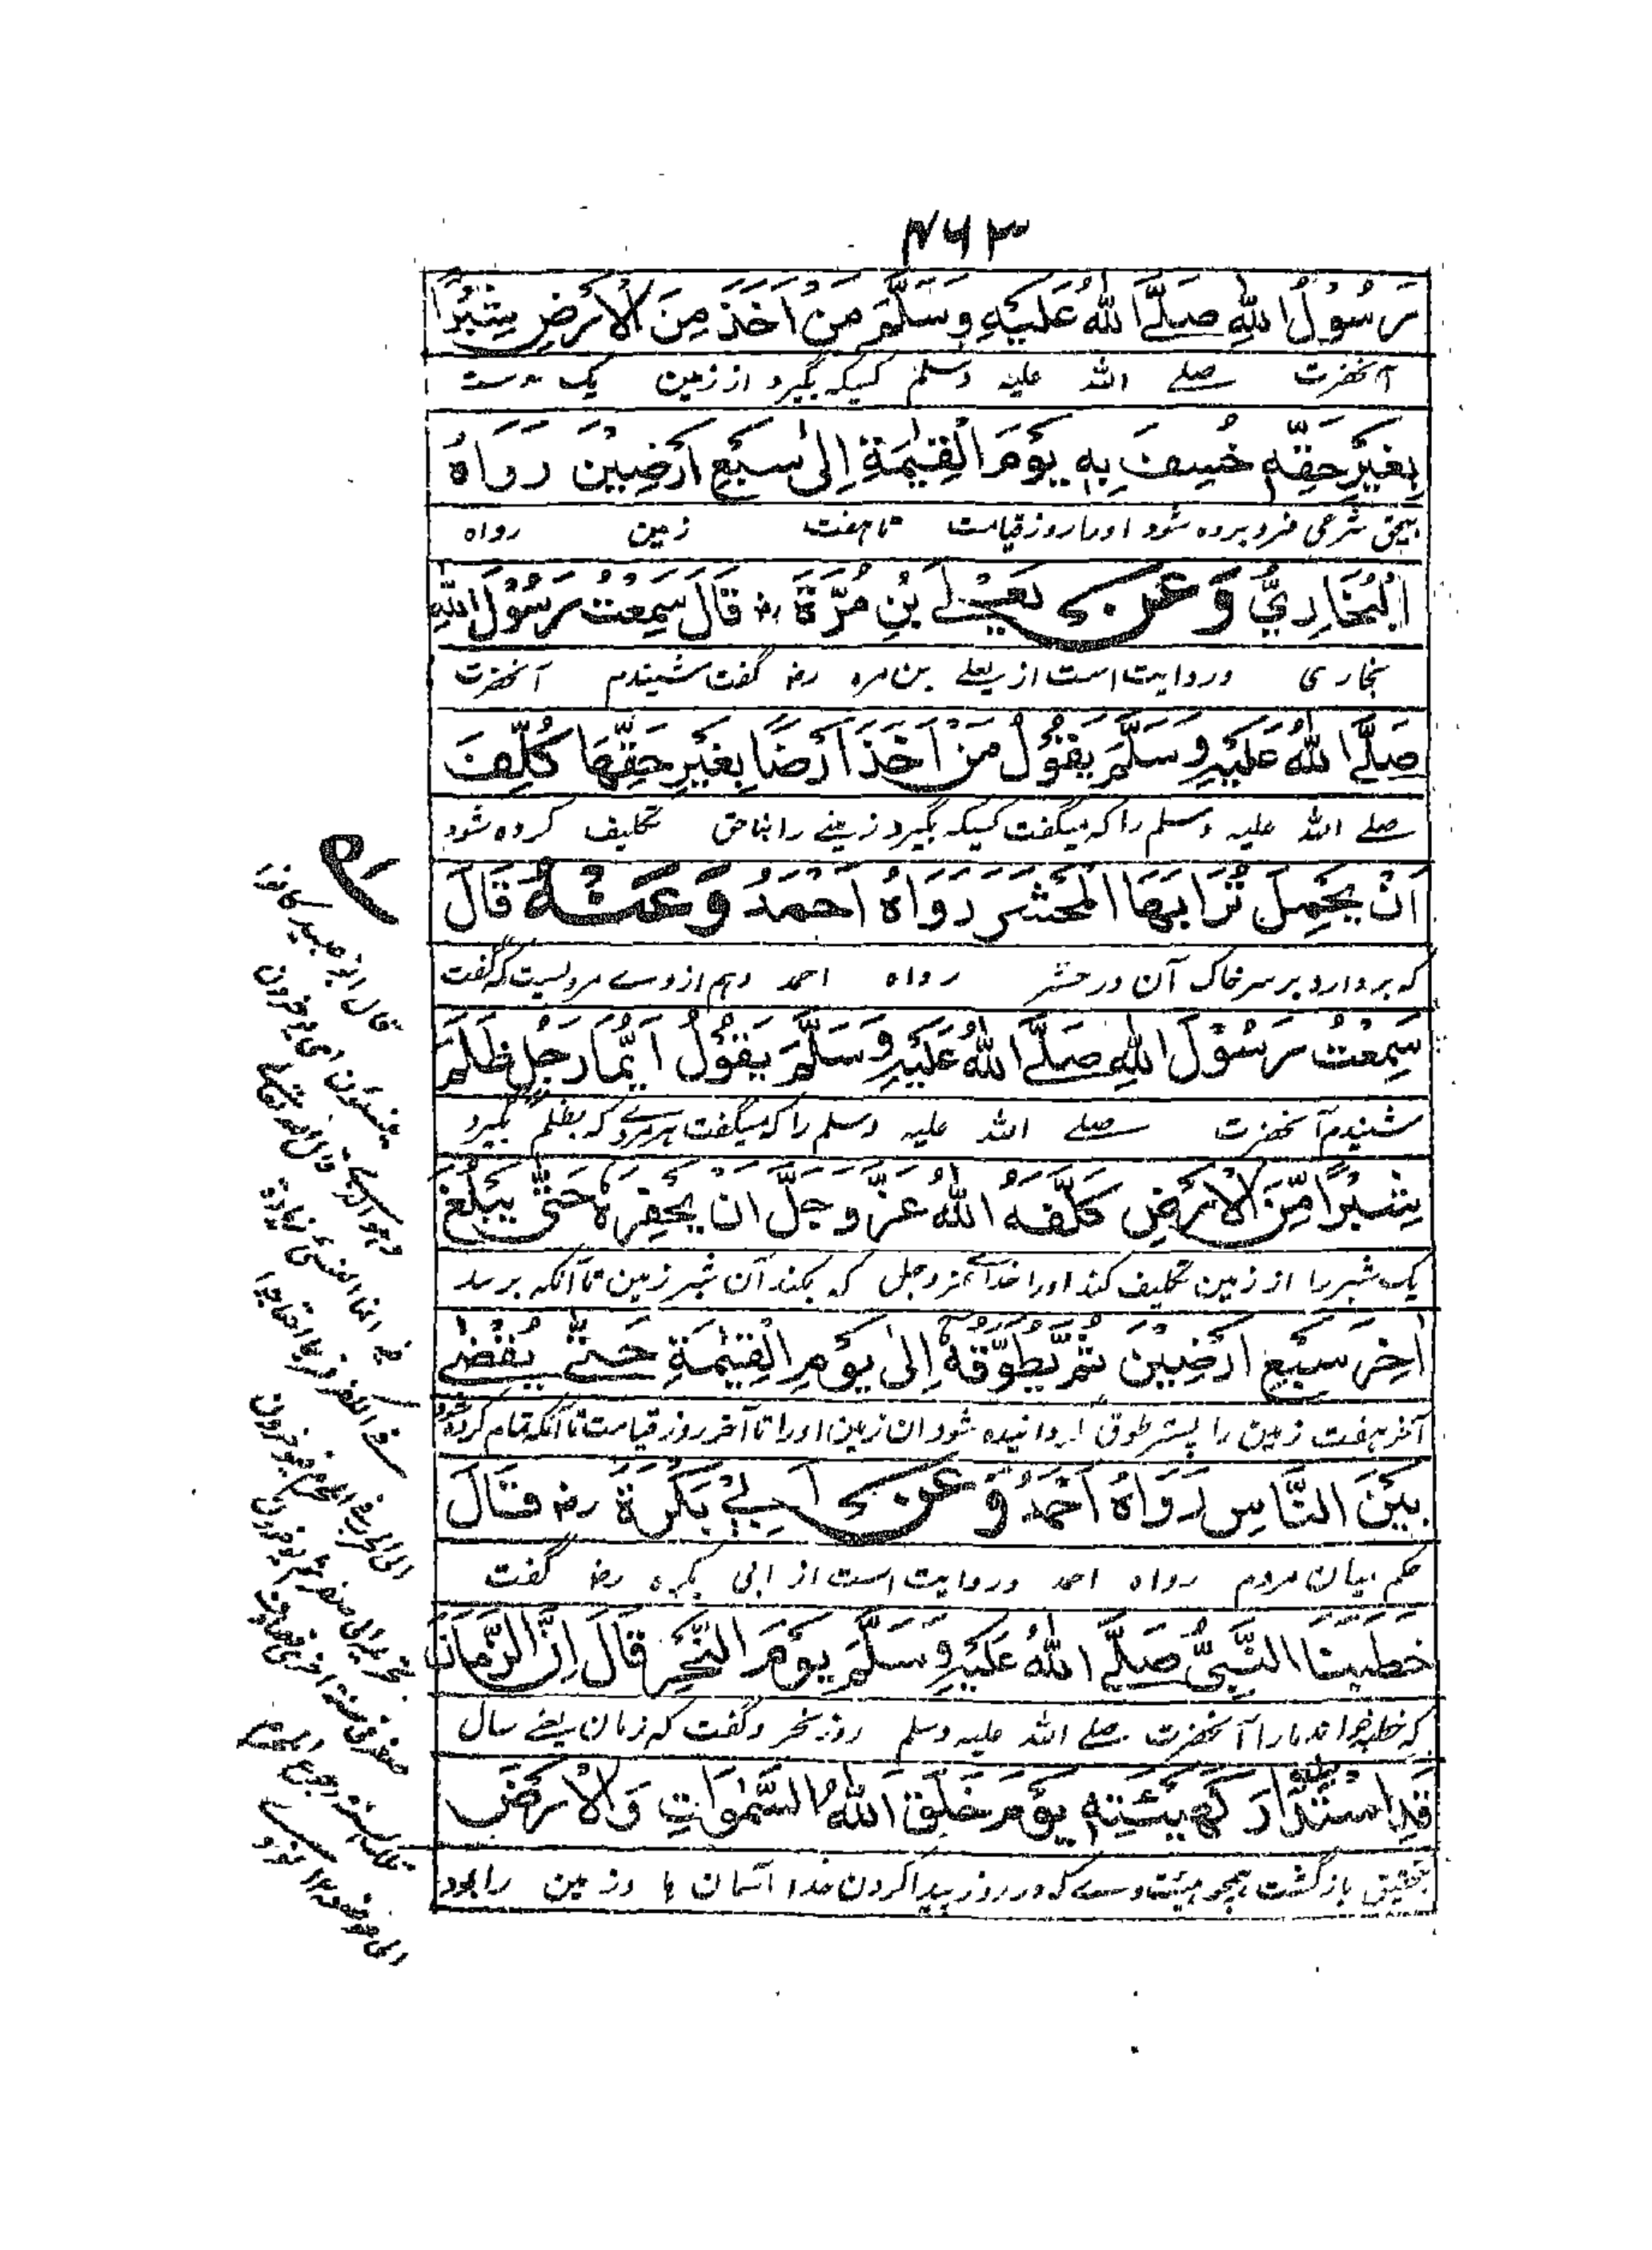 ۴۶۳
رَسُوْلُ اللهِ صَلَّے اللهُ عَلَیْهِ وَسَلَّمَ مَنْ اَخَذَ مِنَ الْاَرْضِ شِبْرًا
آنحضرت صلے الله علیه وسلم کسیکه بگیرد از زمین یک بدست
بِغَیْرِ حَقِّهٖ خُسِفَ بِهٖ یَوْمَ الْقِیٰمَةِ اِلٰی سَبْعِ اَرَضِیْنَ رَوَاهُ
بیحق شرعی فرو برده شود اورا روز قیامت تا هفت زمین رواه
الْبُخَارِیُّ وَعَنْ یَعْلَے بْنِ مُرَّةَ رضـ قَالَ سَمِعْتُ رَسُوْلَ اللهِ
بخاری و روایت است از یعلے بن مره رضـ گفت شنیدم آنحضرت
صَلَّے اللهُ عَلَیْهِ وَسَلَّمَ یَقُوْلُ مَنْ اَخَذَ اَرْضًا بِغَیْرِ حَقِّهَا کُلِّفَ
صلے الله علیه وسلم را که میگفت کسیکه بگیرد زمینے را بناحق تکلیف کرده شود
اَنْ یَّحْمِلَ تُرَابَهَا الْمَحْشَرَ رَوَاهُ اَحْمَدُ وَعَنْهُ قَالَ
که بردارد بر سر خاک آن در حشر رواه احمد و هم از وے مرویست که گفت
سَمِعْتُ رَسُوْلَ اللهِ صَلَّے اللهُ عَلَیْهِ وَسَلَّمَ یَقُوْلُ اَیُّمَا رَجُلٍ ظَلَمَ
شنیدم آنحضرت صلے الله علیه وسلم را که میگفت هر مردے که بظلم بگیرد
شِبْرًا مِّنَ الْاَرْضِ کَلَّفَهُ اللهُ عَزَّ وَجَلَّ اَنْ یَّحْفِرَهٗ حَتّٰی یَبْلُغَ
یک شبر را از زمین تکلیف کند اورا خدائے عز وجل که بکند آن شبر زمین تا آنکه برسد
اٰخِرَ سَبْعِ اَرَضِیْنَ ثُمَّ یُطَوَّقَهٗ اِلٰی یَوْمِ الْقِیٰمَةِ حَتّٰی یُقْضٰے
آخر هفت زمین را پستر طوق گردانیده شود آن زمین اورا تا آخر روز قیامت تا آنکه تمام کرده شود
بَیْنَ النَّاسِ رَوَاهُ اَحْمَدُ وَعَنْ اَبِیْ بَکْرَةَ رضـ قَالَ
حکم میان مردم رواه احمد و روایت است از ابی بکره رضـ گفت
خَطَبَنَا النَّبِیُّ صَلَّے اللهُ عَلَیْهِ وَسَلَّمَ یَوْمَ النَّحْرِ قَالَ اِنَّ الزَّمَانَ
که خطبه خواند مارا آنحضرت صلے الله علیه وسلم روز نحر و گفت که زمان یعنے سال
قَدِ اسْتَدَارَ کَهَیْئَتِهٖ یَوْمَ خَلَقَ اللهُ السَّمٰوَاتِ وَالْاَرْضَ
بتحقیق بازگشت همچو هیئت وے که در روز پیدا کردن خدا آسمان ها و زمین را بود